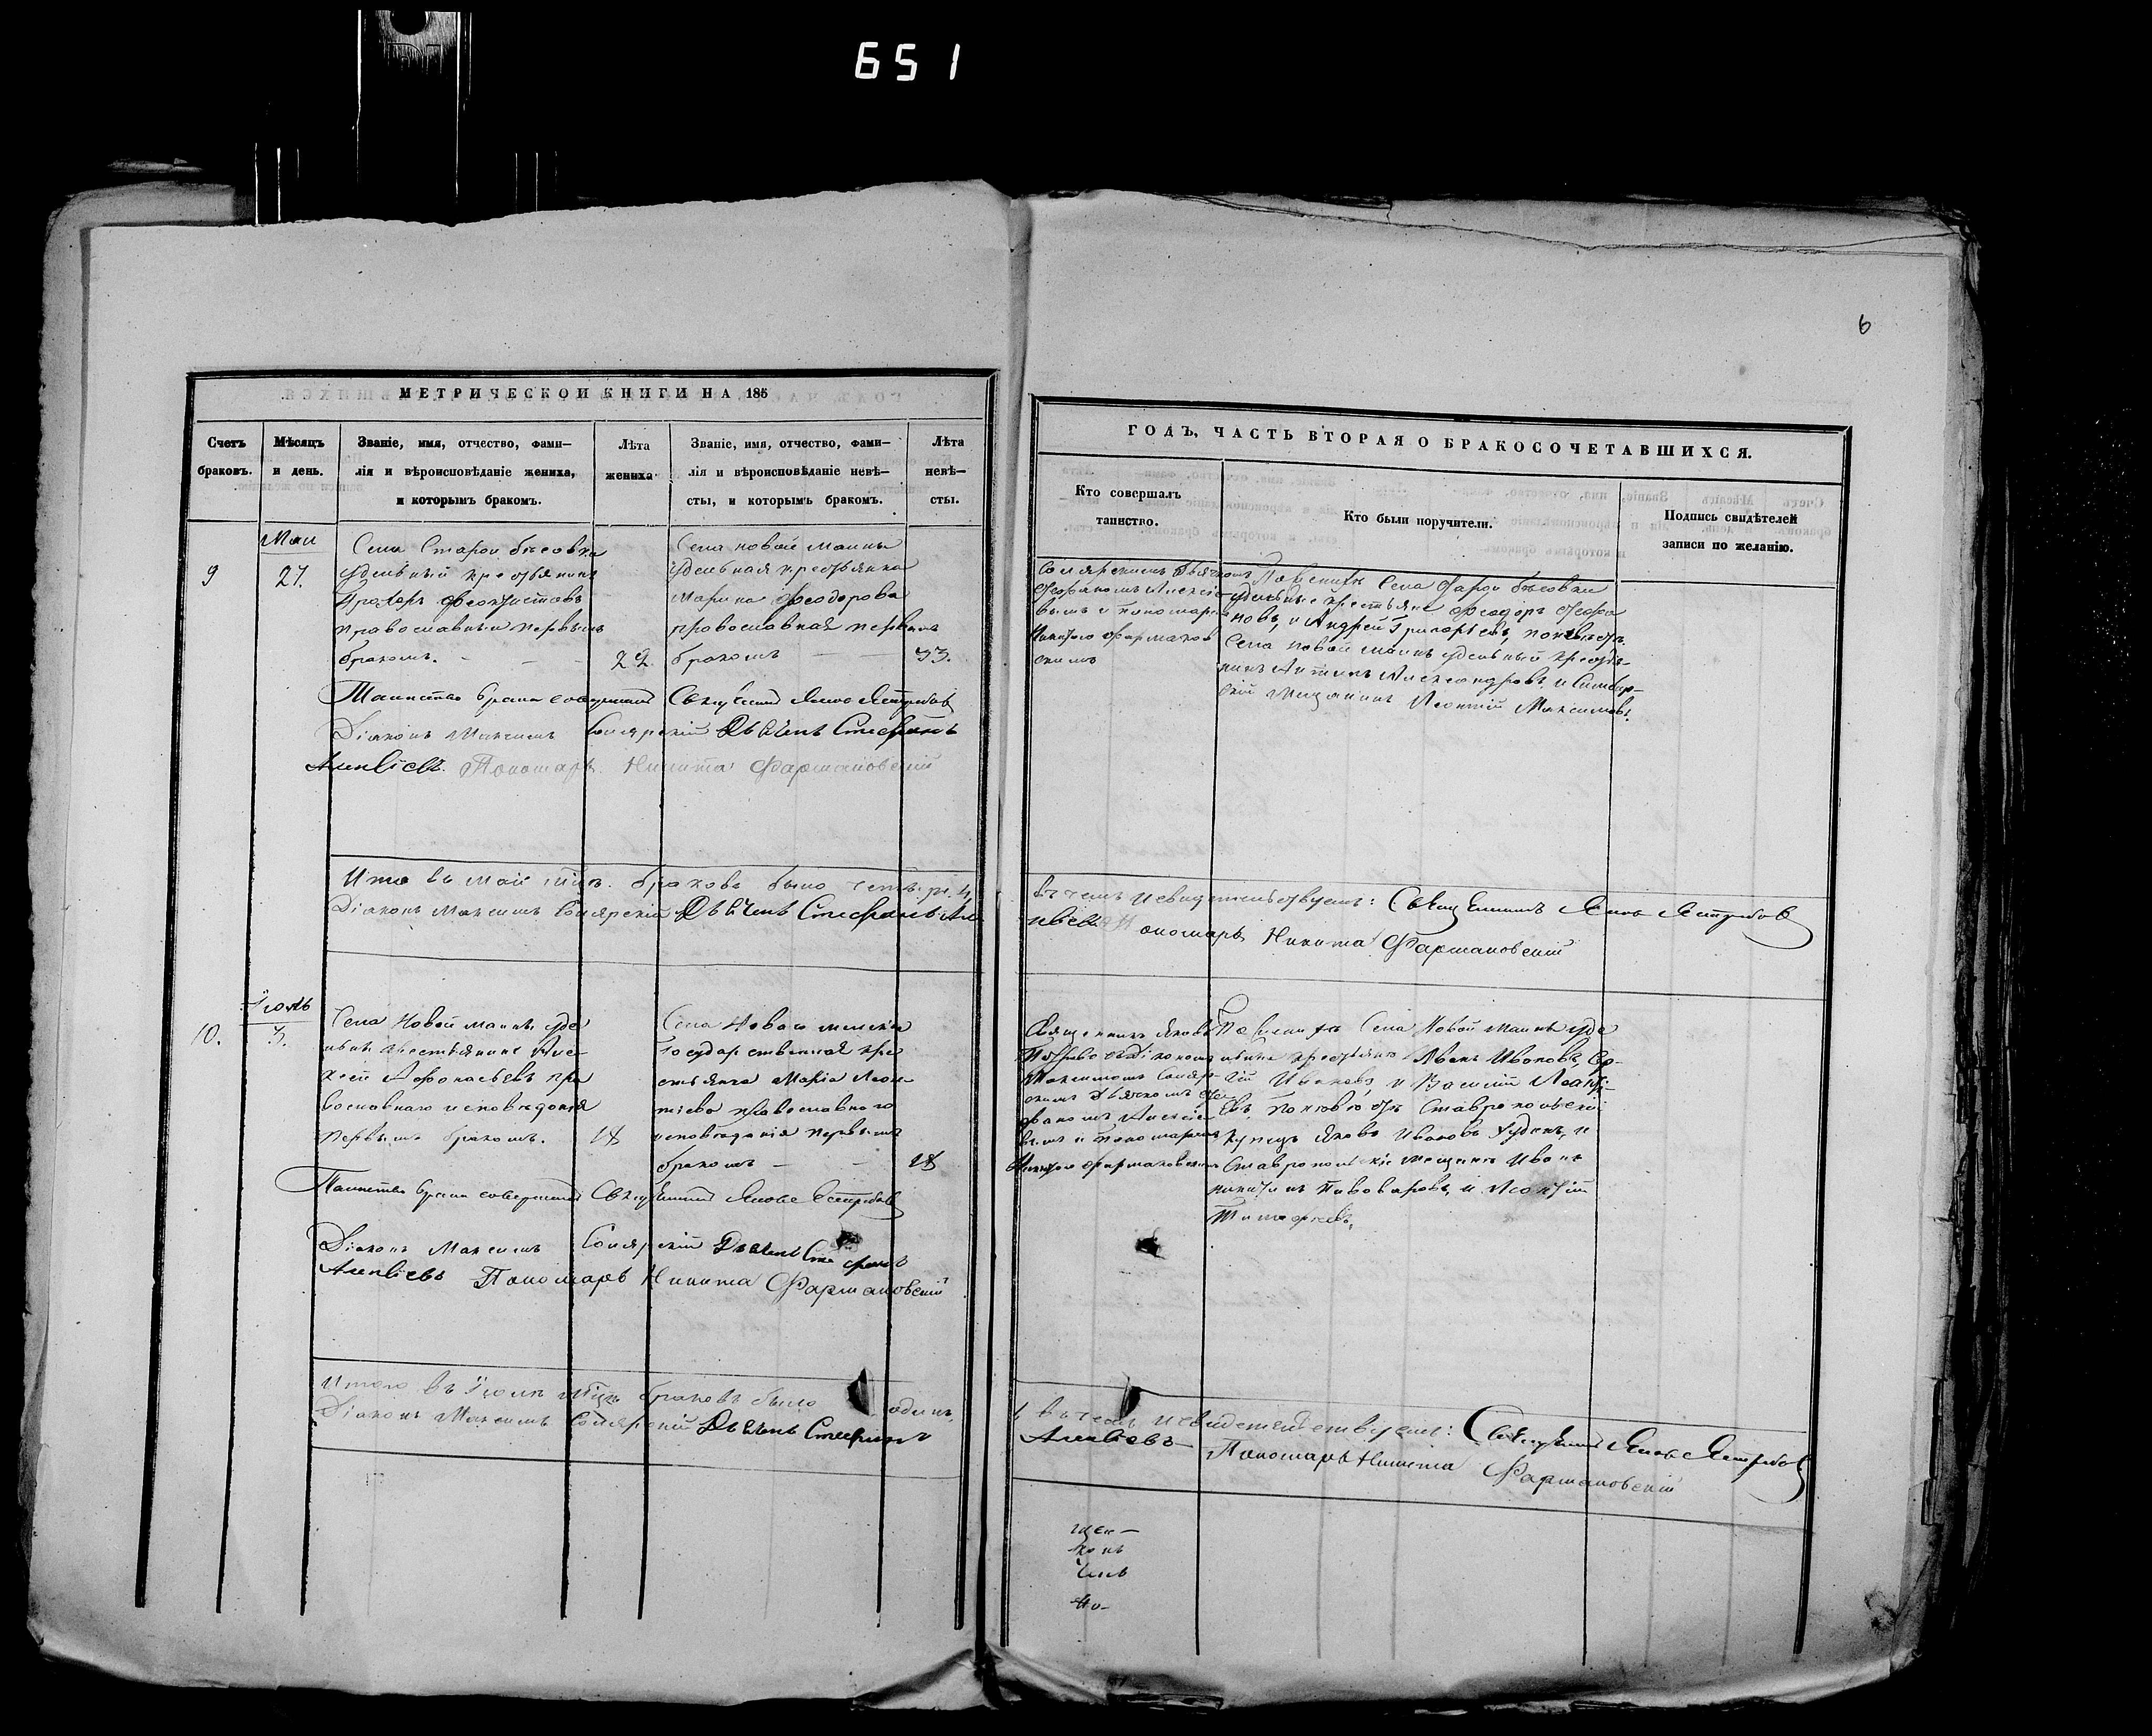 651
6
МЕТРИЧЕСКОЙ КНИГИ НА 185
Счетъ браковъ.
Мѣсяцъ и день.
Званіе, имя, отчество, фами-
лія и вѣроисповѣданіе жениха,
и которымъ бракомъ.
Лѣта
жениха
Званіе, имя, отчество, фами-
лія и вѣроисповѣданіе невѣ-
сты, и которымъ бракомъ.
Лѣта
невѣ-
сты.
9
Маи
27.
Села Старой Бѣсовки
удельный крестьянинъ
православный первымъ
бракомъ.
22
Села Новой Маины
удельная крестьянка
Марина Феодорова
православная первымъ
бракомъ
33.
Таинство брака совершалъ Священникъ Яковъ Ястребовъ
Діаконъ Максимъ Солярскій Дьячекъ Стефанъ
Алексіевъ. Пономарь Никита Фармаковскій
Итого въ Маіе мцѣ. браковъ было четыре 4,
Діаконъ Максимъ Солярскій Дьячекъ Стефанъ Але
10.
Іюль
3.
Села Новой Маины уде
льный крестьянинъ Але
ксей Афонасьевъ пра
вославнаго исповѣданія
первымъ бракомъ.
18
Села
Государственная кре
стьянка Марія Леон
тіева православнаго
исповѣданія первымъ
бракомъ
18
Таинство брака совершалъ Священникъ Яковъ Ястребовъ
Діаконъ Максимъ Солярскій Дьячекъ Стефанъ
Алексіевъ Пономарь Никита Фармаковскій
Итого въ Іюлѣ мцѣ браковъ было одинъ,
Діаконъ Максимъ Солярскій Дьячекъ Стефанъ
ГОДЪ, ЧАСТЬ ВТОРАЯ О БРАКОСОЧЕТАВШИХСЯ.
Кто совершалъ
таинство.
Кто были поручители.
Подпись свидѣтелей
записи по желанію.
Солярскимъ Дьячкомъ
Стефаномъ Алексіе
вымъ и пономаремъ
Никитою Фармаков
скимъ
По женихѣ Села Старой Бѣсовки
удельные крестьяне Феодоръ Стефа
новъ, и Андрей Григорьевъ, по невѣстѣ
Села Новой Маины удельный крестья-
нинъ Антипъ Александровъ, и Симбир-
скій мещанинъ Леонтій Максимовъ.
въ чемъ и свидетельствуемъ: Священникъ Яковъ Ястребовъ
ксіевъ Пономарь Никита Фармаковскій
Священникъ Яковъ
Ястребовъ съ Діакономъ
Максимомъ Соляр-
скимъ Дьячкомъ Сте
фаномъ Алексіе
вымъ и пономаремъ
Никитою Фармаковскимъ
По женихѣ Села Новой Маины уде
льные крестьяне Иванъ Ивановъ, Сер-
гій Ивановъ и Василій Леонтi-
евъ, по невѣстѣ Ставропольскій
купецъ Яковъ Ивановъ и
Ставропольскіе мещане Иванъ
Никитинъ Пивоваровъ, и Леонтій
Тимофеевъ,
1, въ чемъ и свидетельствуемъ: Священникъ Яковъ Ястребовъ
Алексіевъ Пономарь Никита
Фармаковскій
щен-
конъ